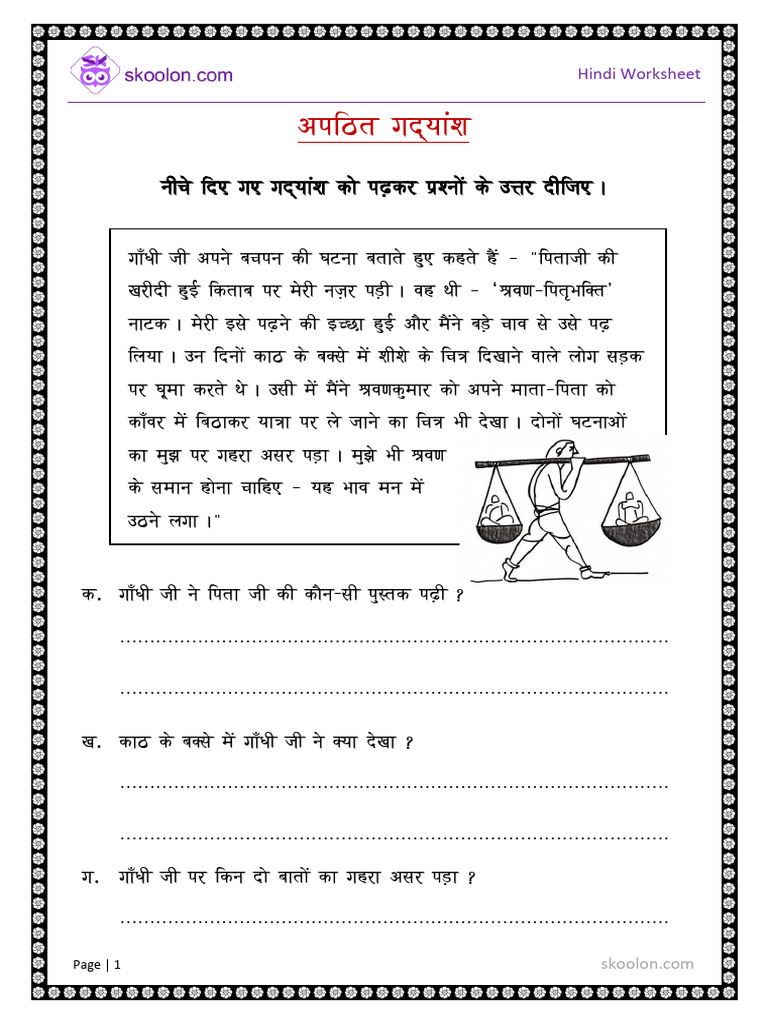 skoolon.com
Hindi Worksheet
अपठित गद्यांश
नीचे दिए गए गद्यांश को पढ़कर प्रश्नों के उत्तर दीजिए ।
गाँधी जी अपने बचपन की घटना बताते हुए कहते हैं - "पिताजी की
खरीदी हुई किताब पर मेरी नज़र पड़ी । वह थी - ‘श्रवण-पितृभक्ति’
नाटक । मेरी इसे पढ़ने की इच्छा हुई और मैंने बड़े चाव से उसे पढ़
लिया । उन दिनों काठ के बक्से में शीशे के चित्र दिखाने वाले लोग सड़क
पर घूमा करते थे । उसी में मैंने श्रवणकुमार को अपने माता-पिता को
काँवर में बिठाकर यात्रा पर ले जाने का चित्र भी देखा । दोनों घटनाओं
का मुझ पर गहरा असर पड़ा । मुझे भी श्रवण
के समान होना चाहिए - यह भाव मन में
उठने लगा ।"
क. गाँधी जी ने पिता जी की कौन-सी पुस्तक पढ़ी ?
ख. काठ के बक्से में गाँधी जी ने क्या देखा ?
ग. गाँधी जी पर किन दो बातों का गहरा असर पड़ा ?
Page | 1
skoolon.com